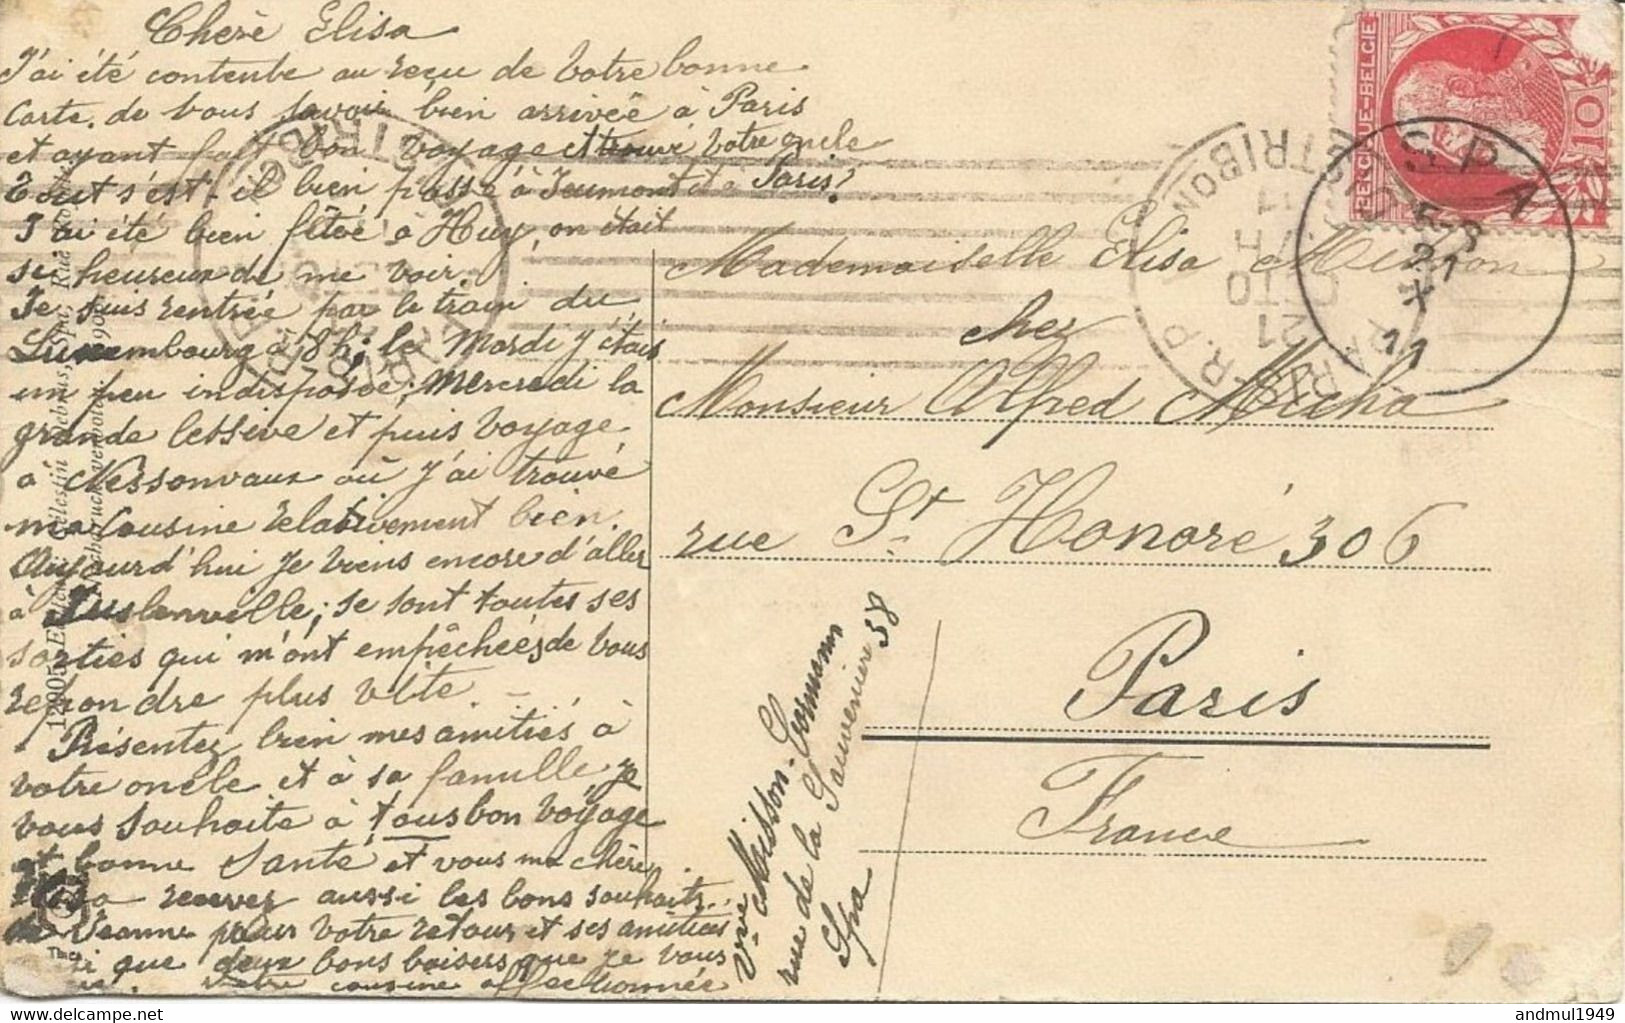 Chère Elisa
J'ai été contente au reçu de votre bonne
carte. de vous savoir bien arrivée à Paris
et ayant fait bon voyage et trouvé votre oncle
Tout s'est-il bien passé à Jeumont et à Paris?
J'ai été bien fêtée à Huy, on était
si heureux de me voir.
Je suis rentrée par le train du
Luxembourg à 8h; le Mardi j'étais
un peu indisposée; Mercredi la
grande lessive et puis voyage
à Nessonvaux où j'ai trouvé
ma Cousine relativement bien.
Aujourd'hui je viens encore d'aller
à Juslenville; se sont toutes ses
sorties qui m'ont empêchées de vous
repondre plus vite.
Présentez bien mes amitiés à
votre oncle et à sa famille je
vous souhaite à tous bon voyage
et bonne Santé et vous ma chère
recevez aussi les bons souhaits
de Jeanne pour votre retour et ses amitiés
que deux bons baisers que je vous
Votre cousine affectionnée
Mademoiselle Elisa Misson
chez
Monsieur Alfred Micha
rue St. Honoré 306
Paris
France
Vve Misson-Cormann
rue de la Sauvenière 38
Spa
BELGIQUE-BELGIË
10
SPA
5-8
21
X
11
PARIS-R.P.
DISTRIBON
21
andmul1949